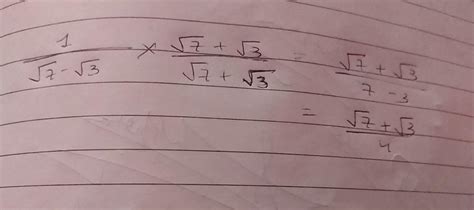 1/(√7-√3) × (√7+√3)/(√7+√3) = (√7+√3)/(7-3)
= (√7+√3)/4